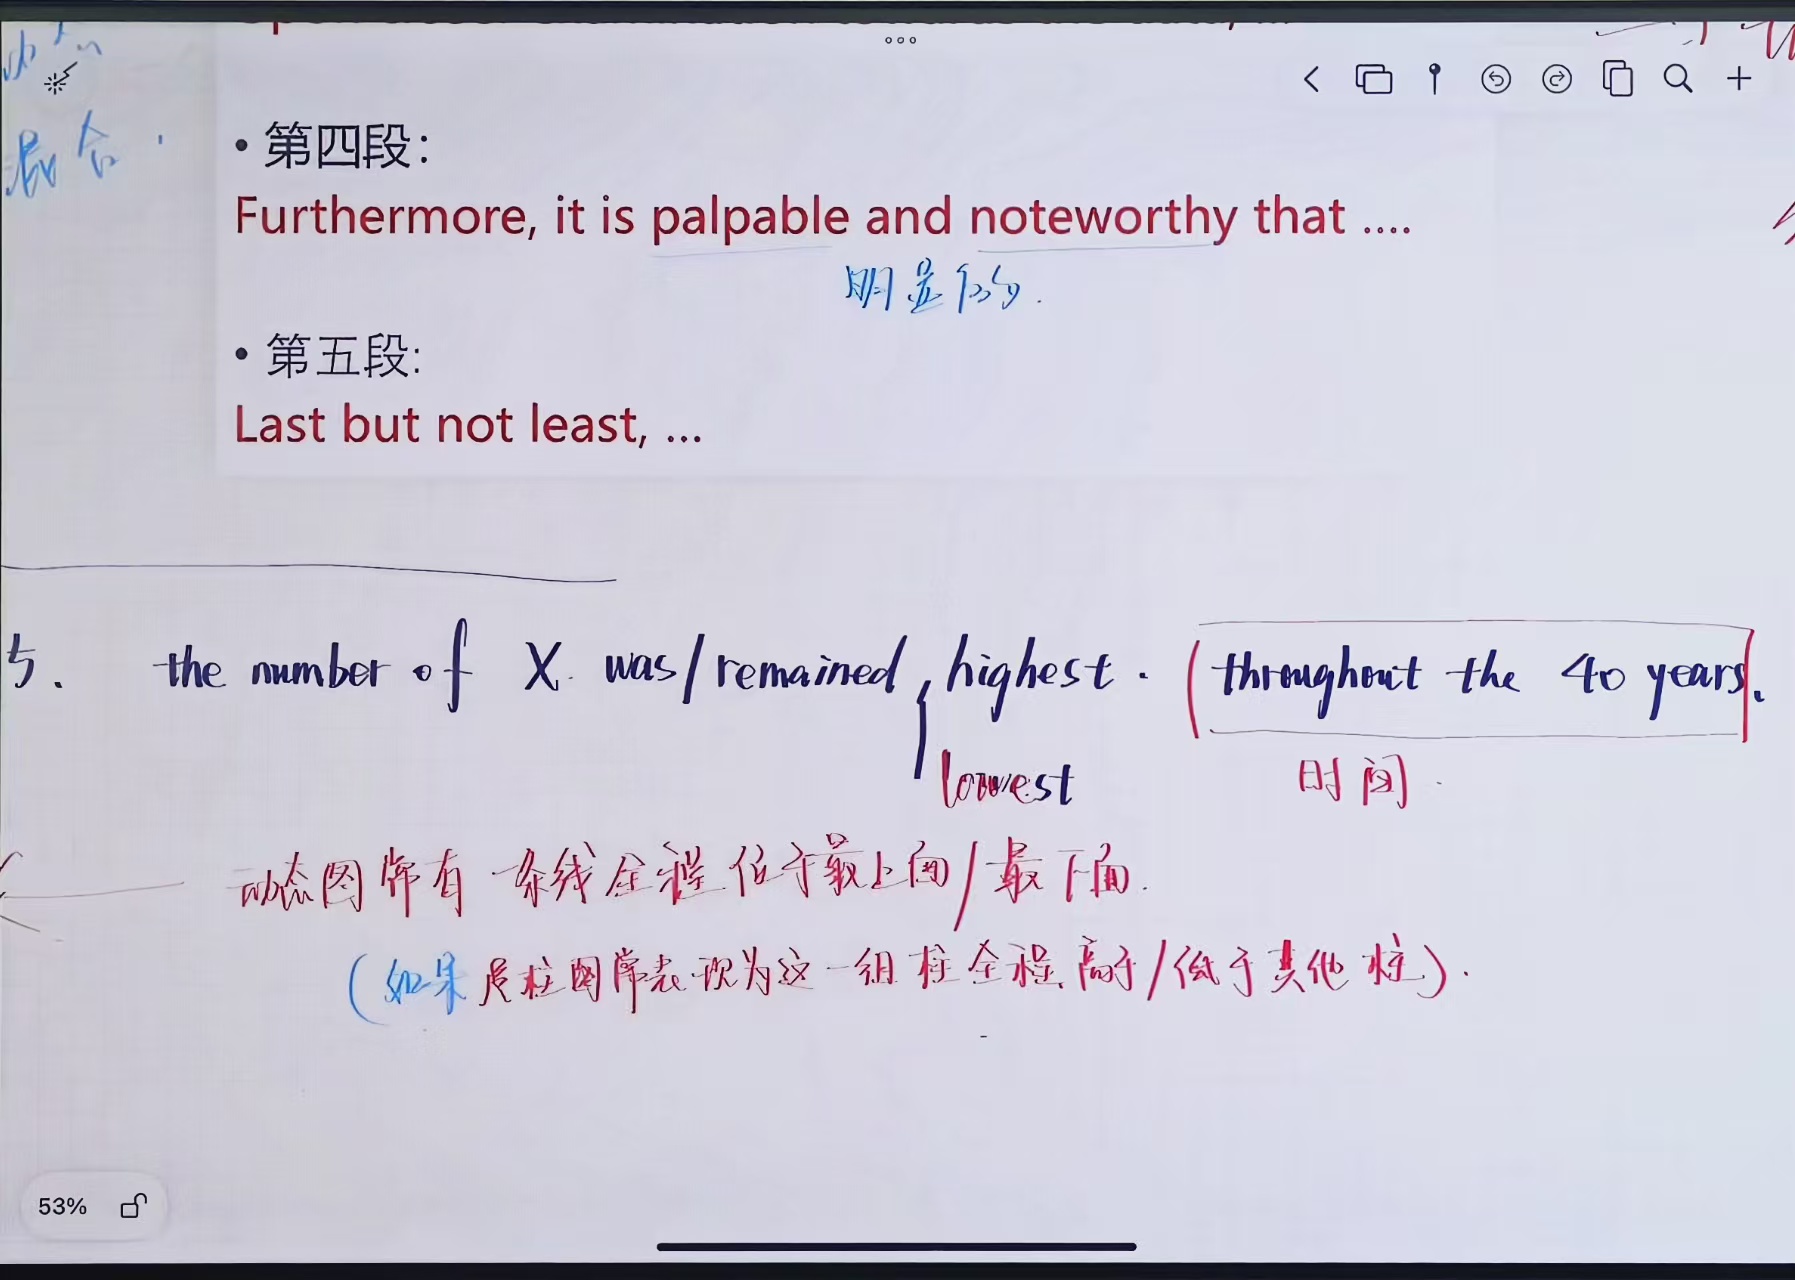 混合.
• 第四段:
Furthermore, it is palpable and noteworthy that ....
明显的.
• 第五段:
Last but not least, ...
5. the number of X was/remained, highest. (throughout the 40 years).
lowest
时间.
动态图常有一条线全程位于最上面/最下面.
(如果是柱图常表现为这一组柱全程高于/低于其他柱).
53%